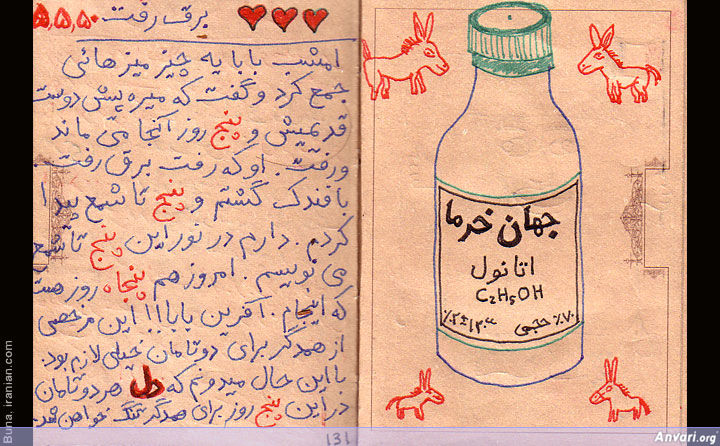 ۵،۵،۵۰ برق رفت
امشب بابا یه چیز میز هائی
جمع کرد و گفت که میره پیش دوست
قدیمیش و پنج روز آنجا می ماند
و رفت. او که رفت برق رفت.
با فندک گشتم و پنج تا شمع پیدا
کردم. دارم در نور این پنج تا شمع
می نویسم. امروز هم پنجاه روز هست
که اینجام. آفرین بابا!!! این مرخصی
از همدیگر برای دوتامان خیلی لازم بود.
با این حال میدونم که دل هر دوتامان
در این پنج روز برای همدیگر تنگ خواهن شد.
131
جهان خرما
اتانول
C₂H₅OH
٪۷۰ حجمی
Buna. iranian.com
Anvari.org